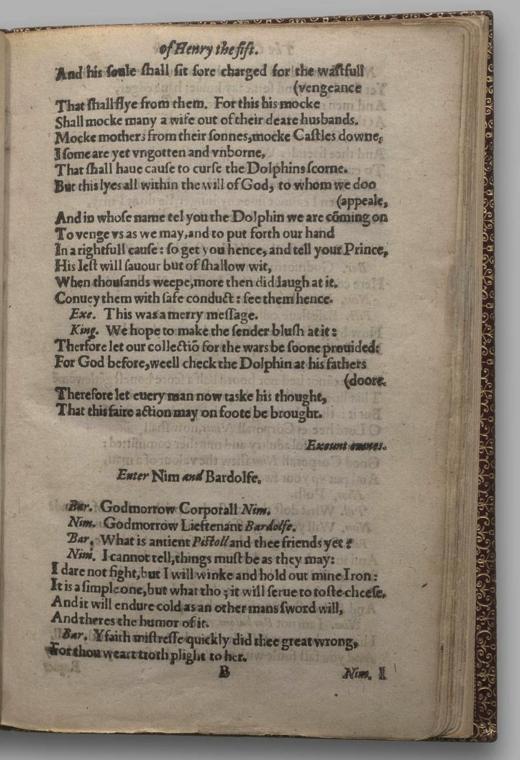 of Henry the fift.
And his soule shall sit sore charged for the wastfull
(vengeance
That shall flye from them. For this his mocke
Shall mocke many a wife out of their deare husbands.
Mocke mothers from their sonnes, mocke Castles downe,
I some are yet vngotten and vnborne,
That shall haue cause to curse the Dolphins scorne.
But this lyes all within the will of God, to whom we doo
(appeale,
And in whose name tel you the Dolphin we are cōming on
To venge vs as we may, and to put forth our hand
In a rightfull cause: so get you hence, and tell your Prince,
His Iest will sauour but of shallow wit,
When thousands weepe, more then did laugh at it.
Conuey them with safe conduct: see them hence.
Exe. This was a merry message.
King. We hope to make the sender blush at it:
Therfore let our collectiō for the wars be soone prouided:
For God before, weell check the Dolphin at his fathers
(doore.
Therefore let euery man now taske his thought,
That this faire action may on foote be brought.
Exeunt omnes.
Enter Nim and Bardolfe.
Bar. Godmorrow Corporall Nim.
Nim. Godmorrow Lieftenant Bardolfe.
Bar. What is antient Pistoll and thee friends yet?
Nim. I cannot tell, things must be as they may:
I dare not fight, but I will winke and hold out mine Iron:
It is a simple one, but what tho; it will serue to toste cheese,
And it will endure cold as an other mans sword will,
And theres the humor of it.
Bar. Yfaith mistresse quickly did thee great wrong,
For thou weart troth plight to her.
B
Nim. I